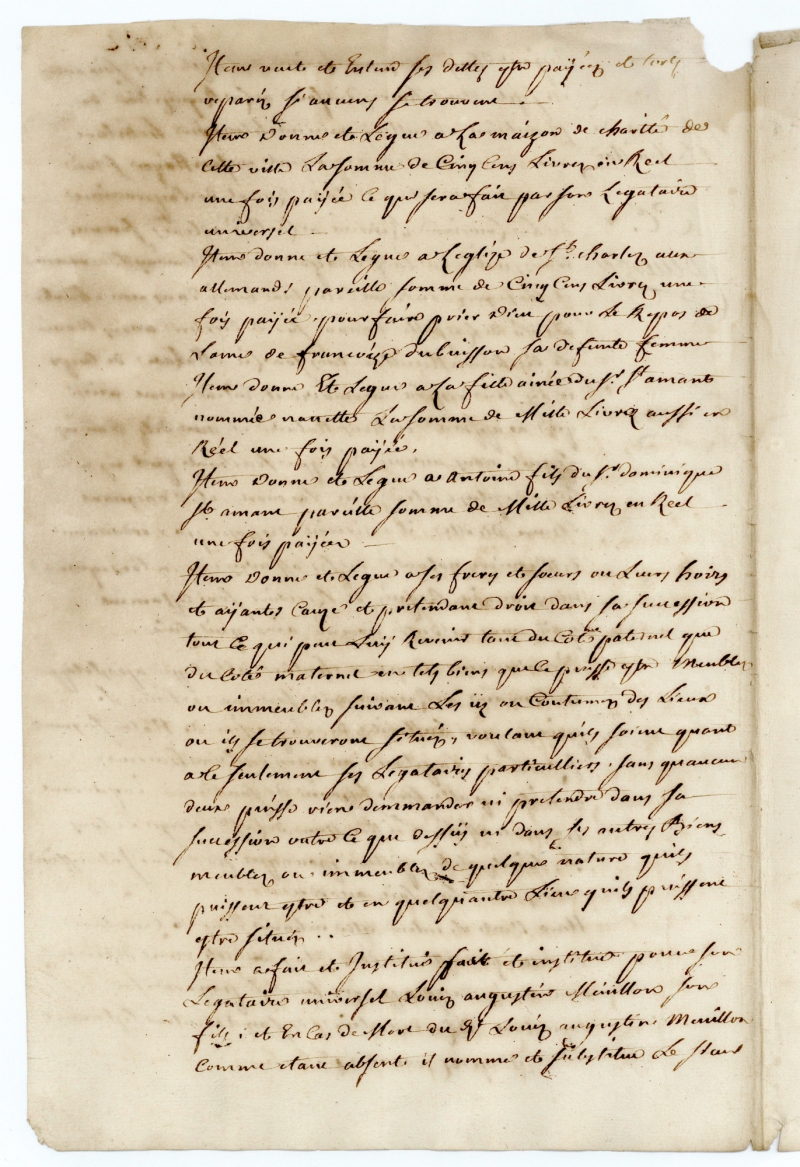 Item veut et Entend ses dettes estre payéez et torts
reparéz si aucuns se trouvent.
Item Donne et Legue a La maizon de charité de
cette ville La somme de Cinq Cens Livrez en Reel
une fois payée ce que sera fait par son Legataire
universel
Item donne et Legue a Leglize de St. charlez aux
allemands pareille somme de Cinq Cens Livrez une
fois payée pour faire prier Dieu pour Le Repos de
Lame de francoize dubuisson sa defunte femme
Item donne Et Legue a La fille ainée du Sr. St amant
nommée nanette La somme de Mille Livrez aussi en
Réel une fois payée.
Item Donne et Legue a Antoine fils du Sr. dominique
St amant pareille somme de Mille Livrez en Reel
une fois payéee
Item Donne et Legue a ses freres et soeurs ou Leurs hoirs
et aÿants Cauze et pretendant droit dans sa succession
tout ce qui peut Luy Revenir tant du Coté paternel que
du Coté maternel en tels biens que ce puisse estre Meublez
ou immeublez suivant Les us ou Coutumes des Lieux
ou ils se trouveront situéz, voulant quils soient quant
a ce seulement ses Legataires particuilliers, sans quaucun
deux puisse rien demmander ni pretendre dans sa
succession outre ce que dessus ni dans ses autres Biens
meublez ou immeublez de quelque nature quils
puissent estre et en quelquautre Lieux quils puissent
estre situéz ..
Item a fait et Institué fait et institue pour son
Legataire universel Louis augustin Meüillon son
fils ; et En Cas de Mort du Sr Louis augustin Meuillon
comme etant absent il nomme et substitue Le sieur